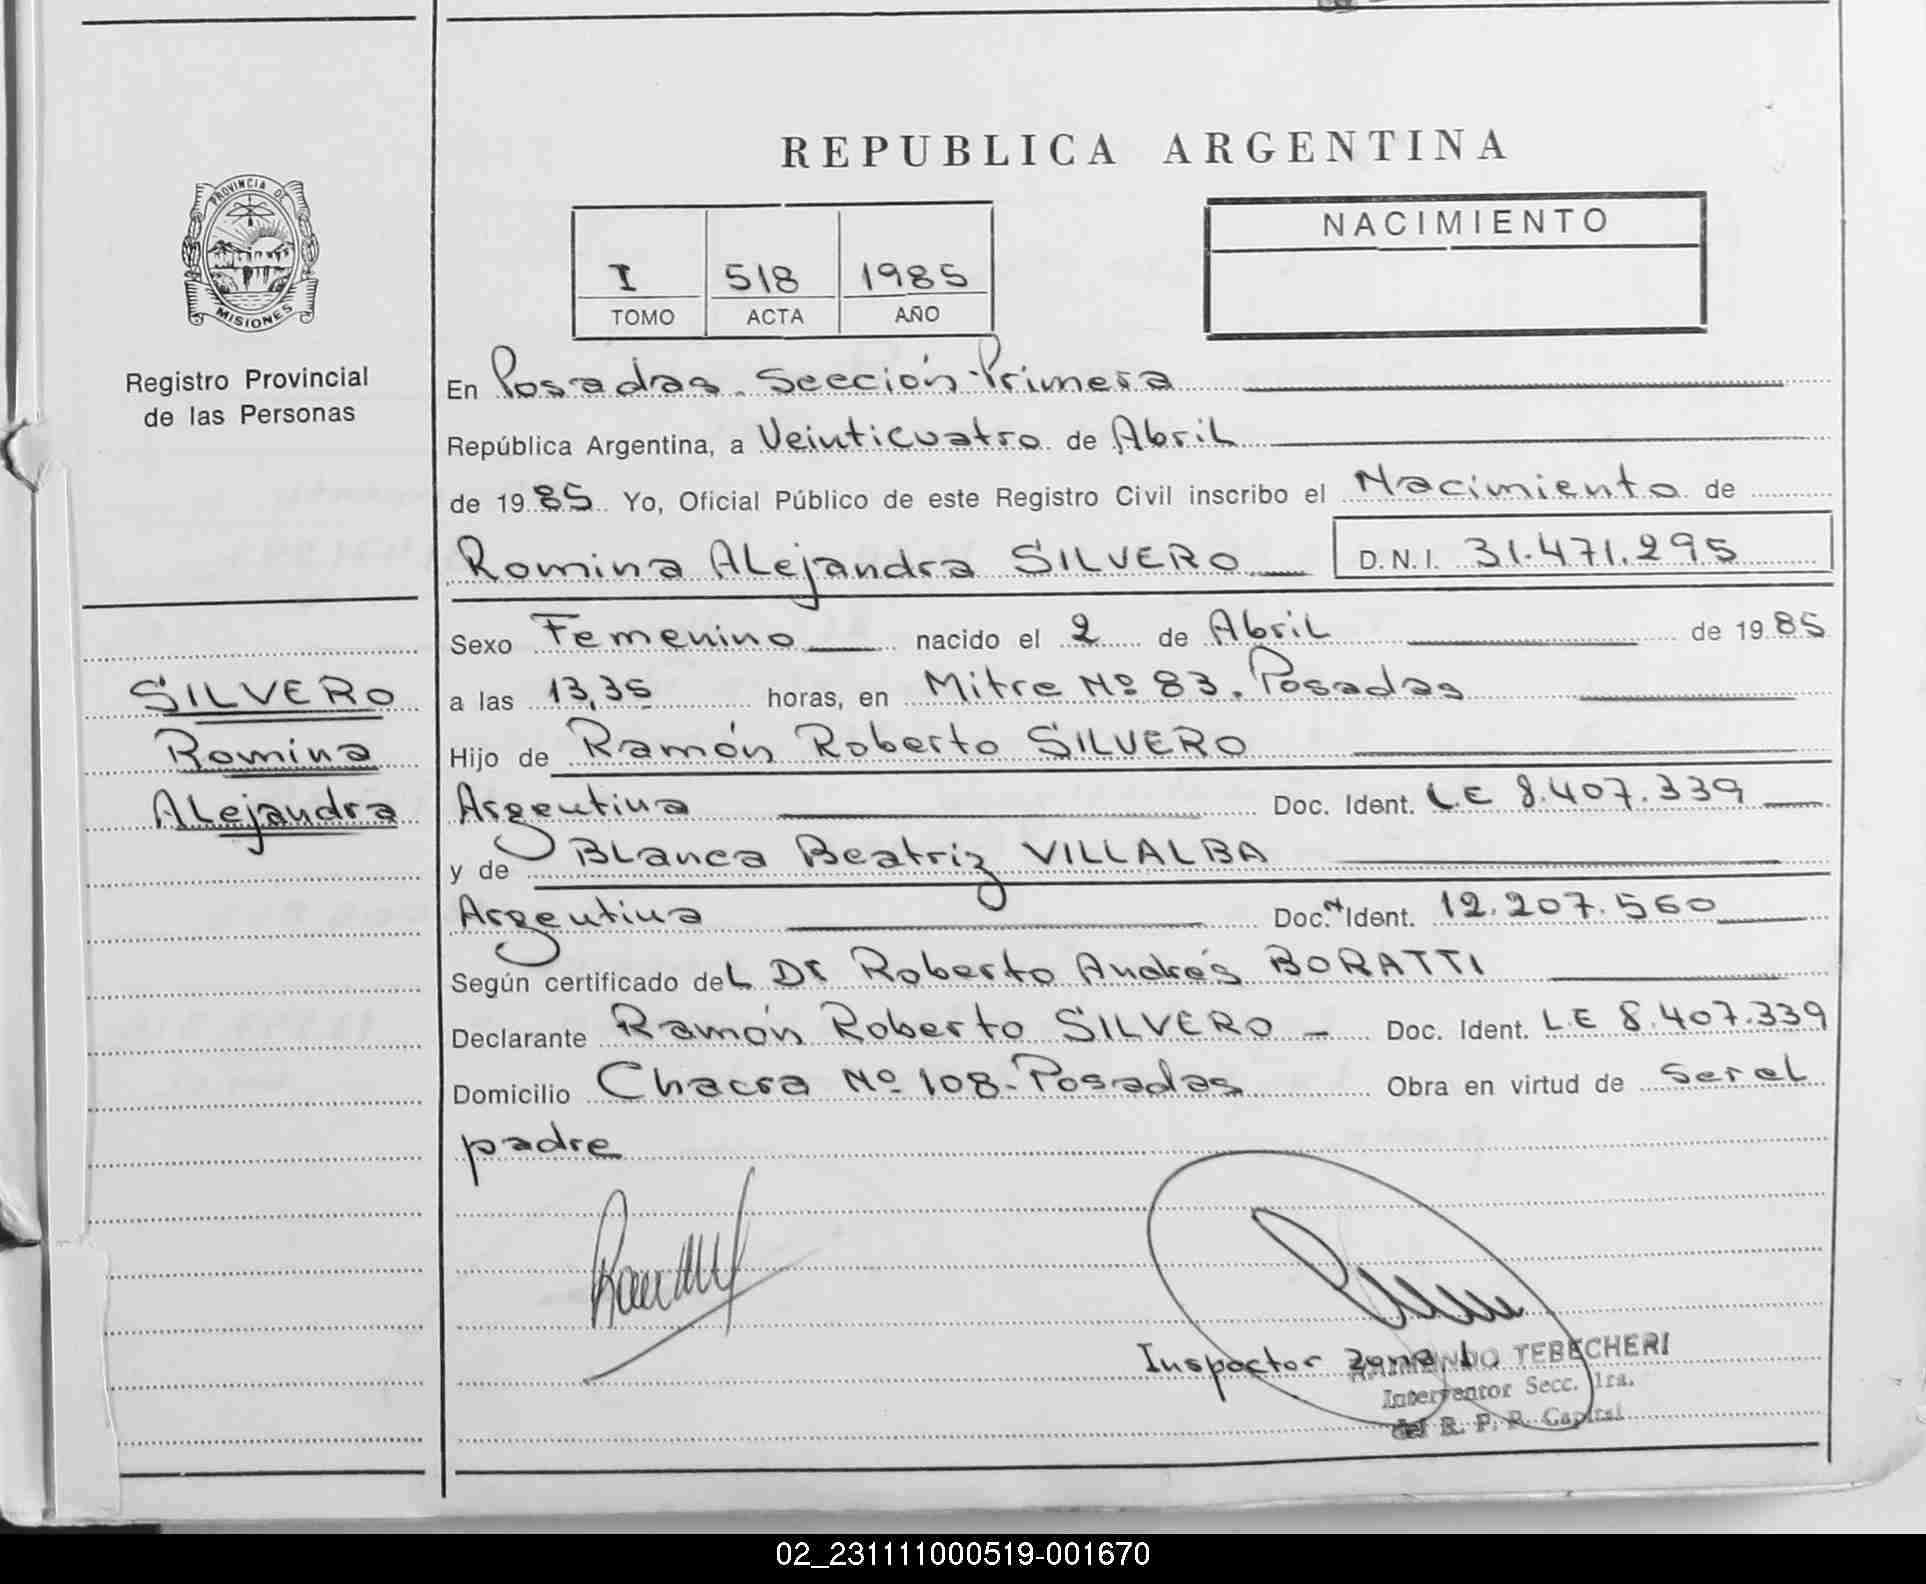 REPUBLICA ARGENTINA
PROVINCIA DE
MISIONES
Registro Provincial
de las Personas
I 518 1985
TOMO ACTA AÑO
NACIMIENTO
En Posadas. Sección Primera
República Argentina, a Veinticuatro de Abril
de 19 85 Yo, Oficial Público de este Registro Civil inscribo el Nacimiento de
Romina Alejandra SILVERO D.N.I. 31.471.295
Sexo Femenino nacido el 2 de Abril de 19 85
SILVERO
Romina
Alejandra
a las 13,35 horas, en Mitre Nº 83. Posadas
Hijo de Ramón Roberto SILVERO
Argentina Doc. Ident. LE 8.407.339
y de Blanca Beatriz VILLALBA
Argentina Doc. Ident. 12.207.560
Según certificado del Dr Roberto Andrés BORATTI
Declarante Ramón Roberto SILVERO - Doc. Ident. LE 8.407.339
Domicilio Chacra Nº 108-Posadas Obra en virtud de Ser el
padre
Inspector Zona 1
TEBECHERI
Interventor Secc. 1ra.
del R. P. P. Capital
02_231111000519-001670